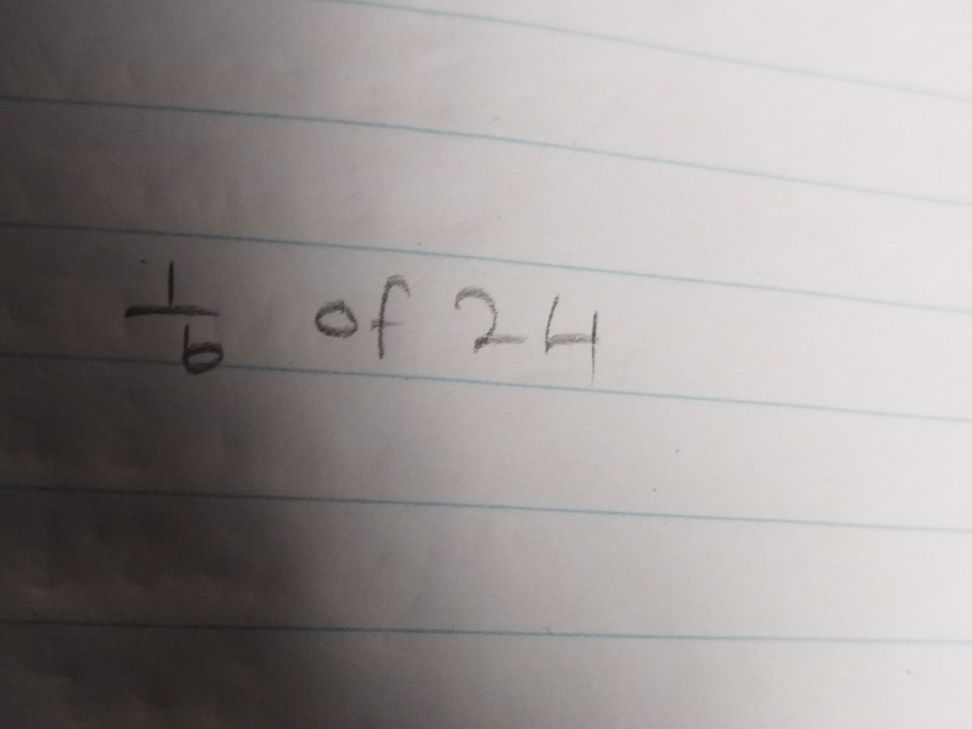 1/6 of 24